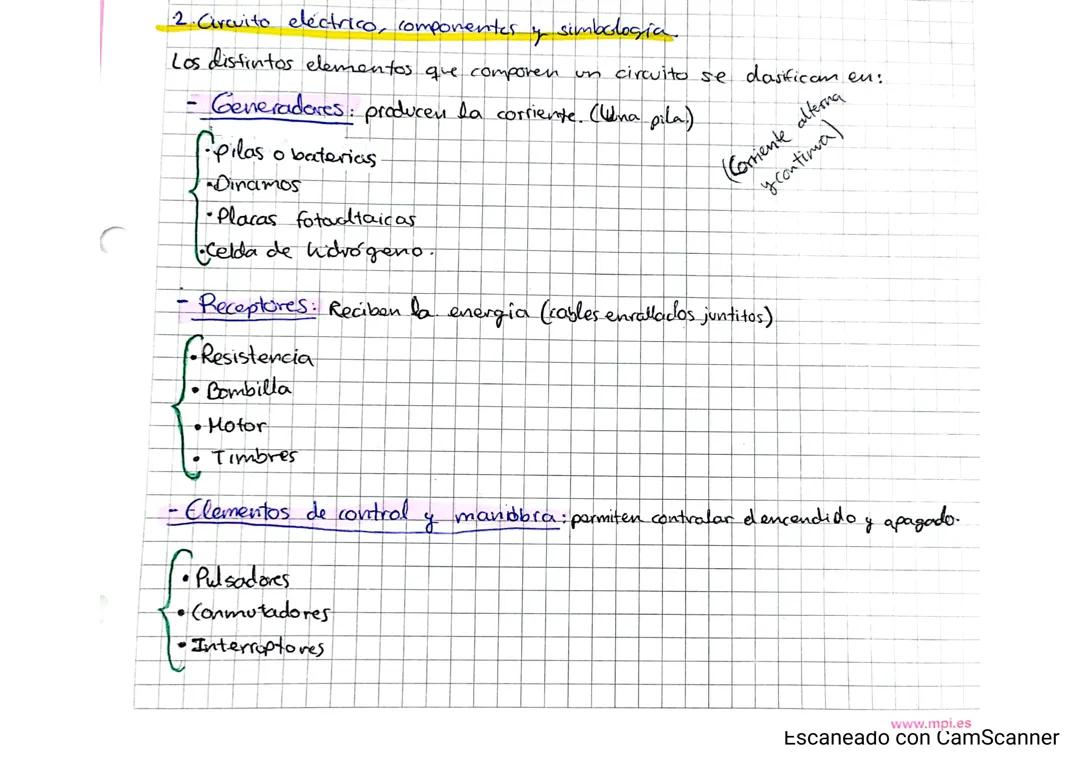 2. Circuito eléctrico, componentes y simbología.
Los distintos elementos que componen un circuito se clasifican en:
- Generadores: producen la corriente. (Una pila)
(Corriente alterna
y continua)
· pilas o baterias
· Dinamos
· Placas fotovoltaicas
· Celda de hidrógeno.
- Receptores: Reciben la energía (cables enrallados juntitos)
· Resistencia
· Bombilla
· Motor
· Timbres
- Elementos de control y maniobra: permiten controlar el encendido y apagado.
· Pulsadores
· Conmutadores
· Interruptores
www.mpi.es
Escaneado con CamScanner